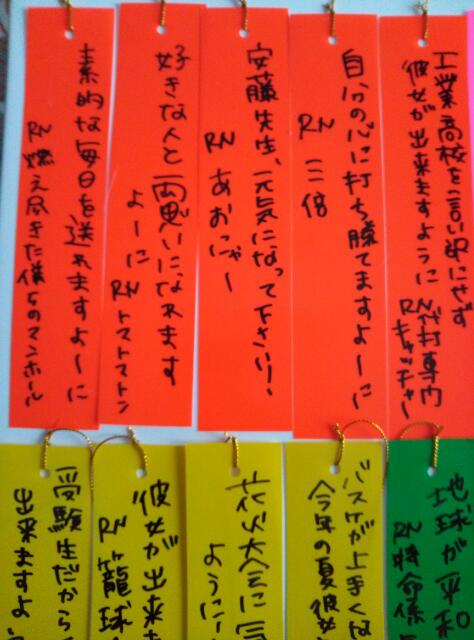 工業高校を言い訳にせず
彼女が出来ますように
RN 竹村専門
キャッチャー
自分の心に打ち勝てますよーに
RN 三倍
安藤先生、元気になって下さい!
RN あおにゃー
好きな人と両思いになれます
よーに RNトマトマトン
素敵な毎日を送れますよーに
RN 燃え尽きた僕らのマンホール
地球が平和
RN 特命係
バスケが上手くな
今年の夏彼女
花火大会に
ように
彼女が出来
RN 籠球
受験生だから
出来ますよ